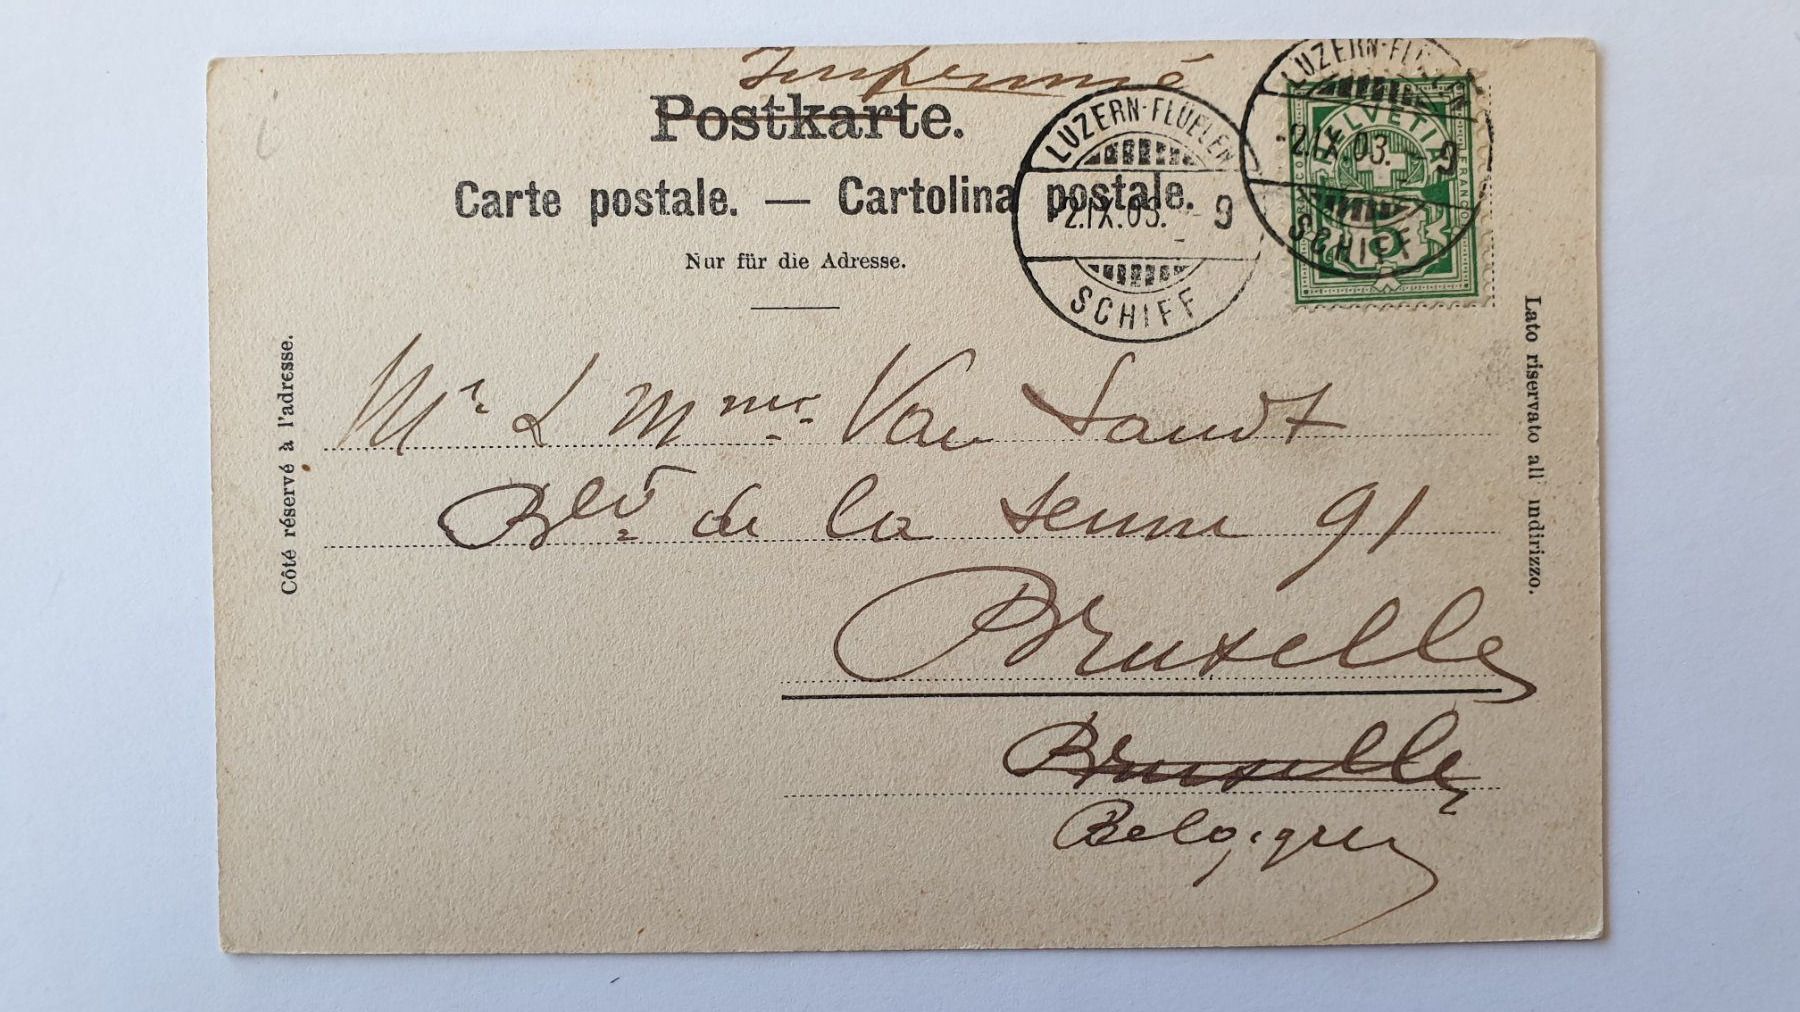 Imprimé
Postkarte.
Carte postale. — Cartolina postale.
Nur für die Adresse.
LUZERN-FLÜELEN
-2.IX.03. - 9
SCHIFF
LUZERN-FLÜELEN
-2.IX.03. - 9
SCHIFF
HELVETIA
FRANCO
5
Côté réservé à l'adresse.
Lato riservato all' indirizzo.
Mr & Mme Van Sandt
Blvd de la Senne 91
Bruxelles
Bruxelles
Belgique